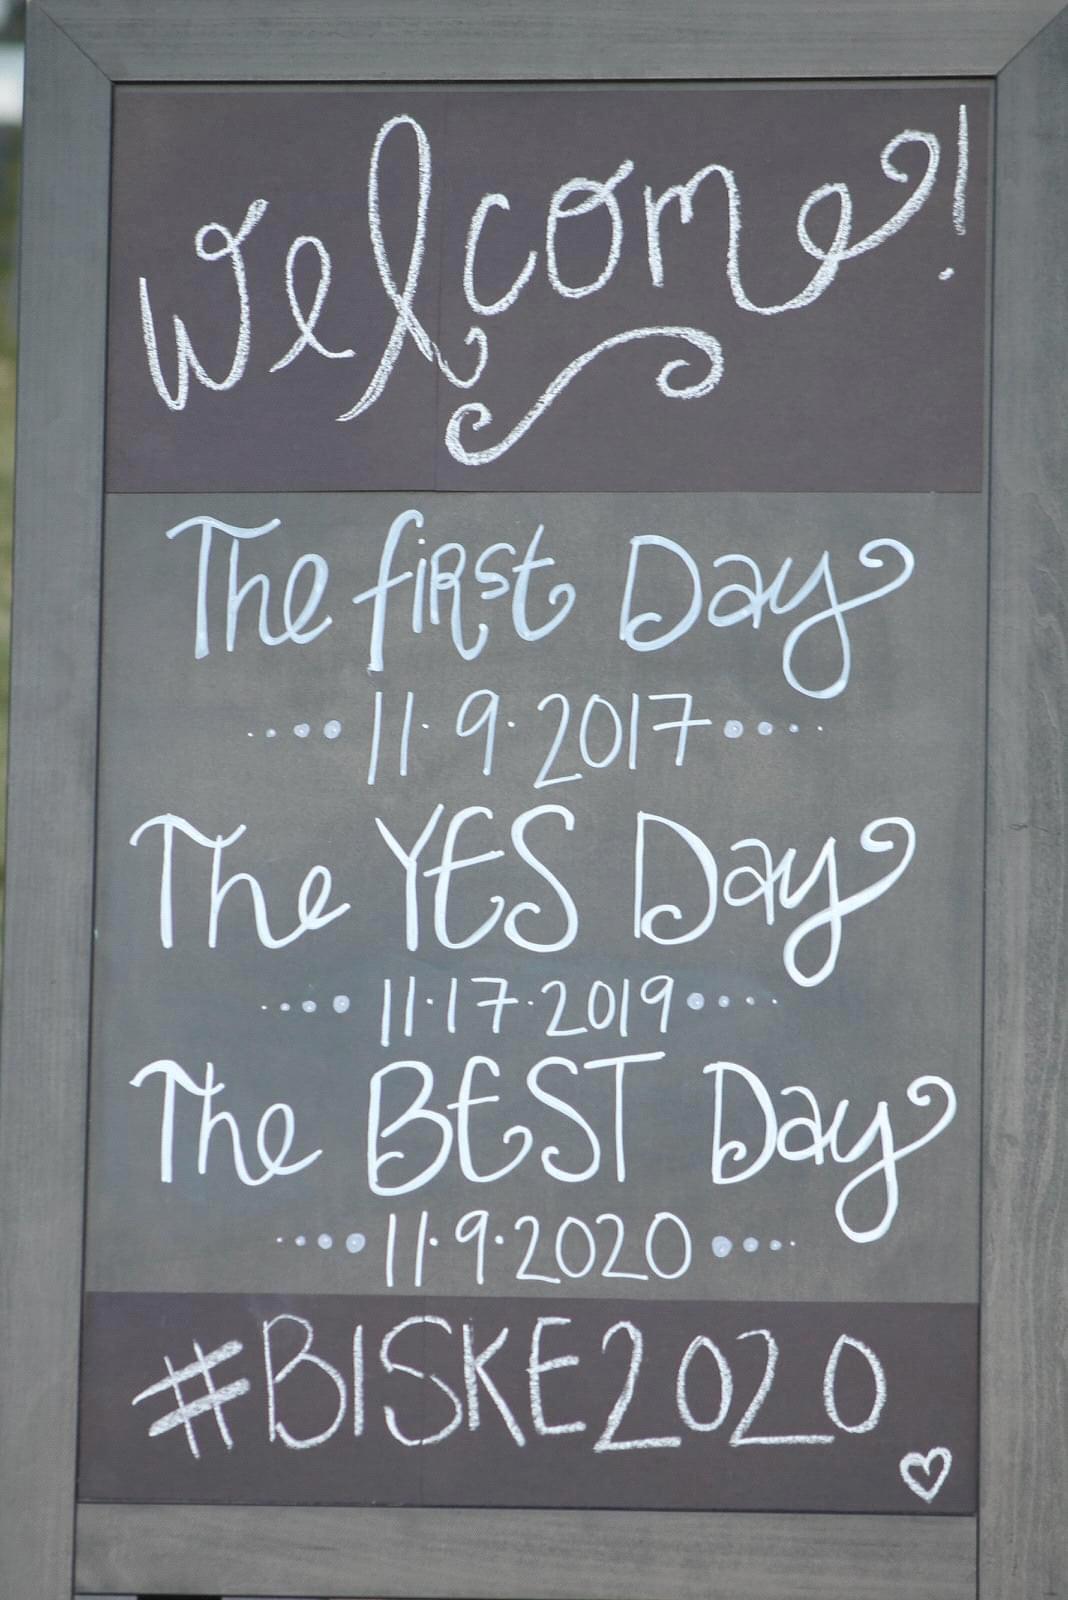 Welcome!
The first Day
11.9.2017
The YES Day
11.17.2019
The BEST Day
11.9.2020
#BISKE2020